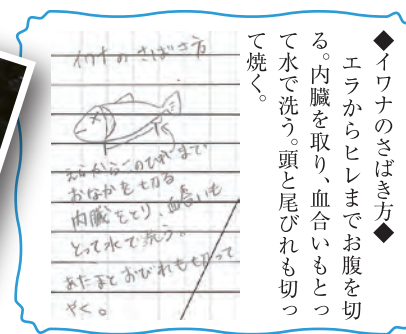 ◆イワナのさばき方◆
エラからヒレまでお腹を切
る。内臓を取り、血合いもとっ
て水で洗う。頭と尾びれも切っ
て焼く。
イワナのさばき方
えらからこのひれまで
おなかを切る
内臓をとり、血合いも
とって水で洗う。
あたまとおびれも切って
やく。